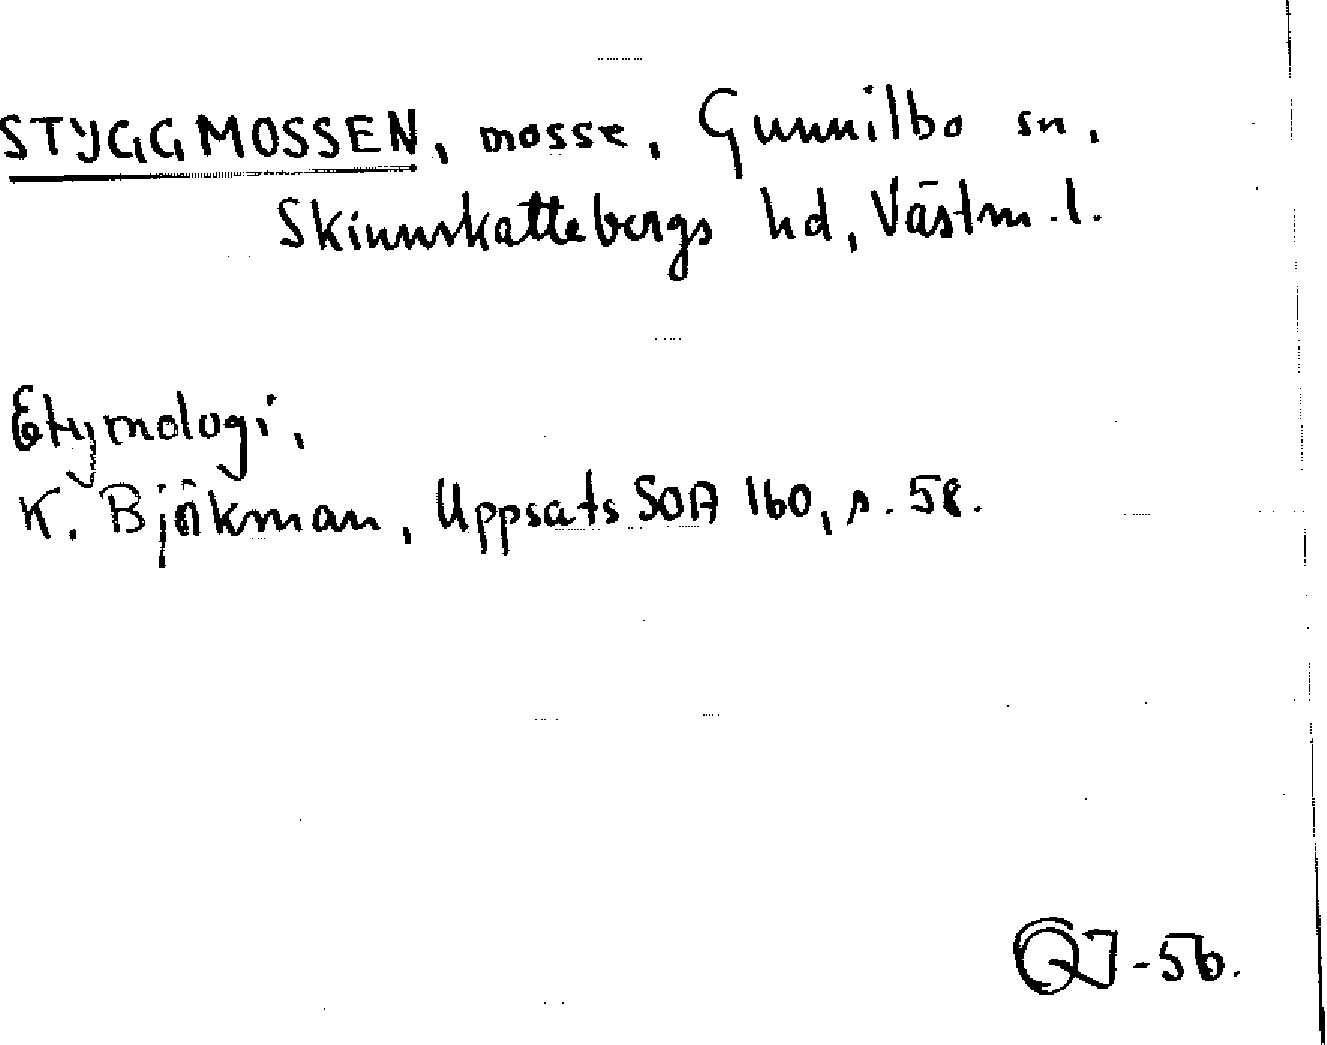 STYGGMOSSEN, mosse, Gunnilbo sn.
Skinnskattebergs hd, Västm. l.
Etymologi,
K. Björkman, Uppsats SOA 160, s. 58.
QJ-56.